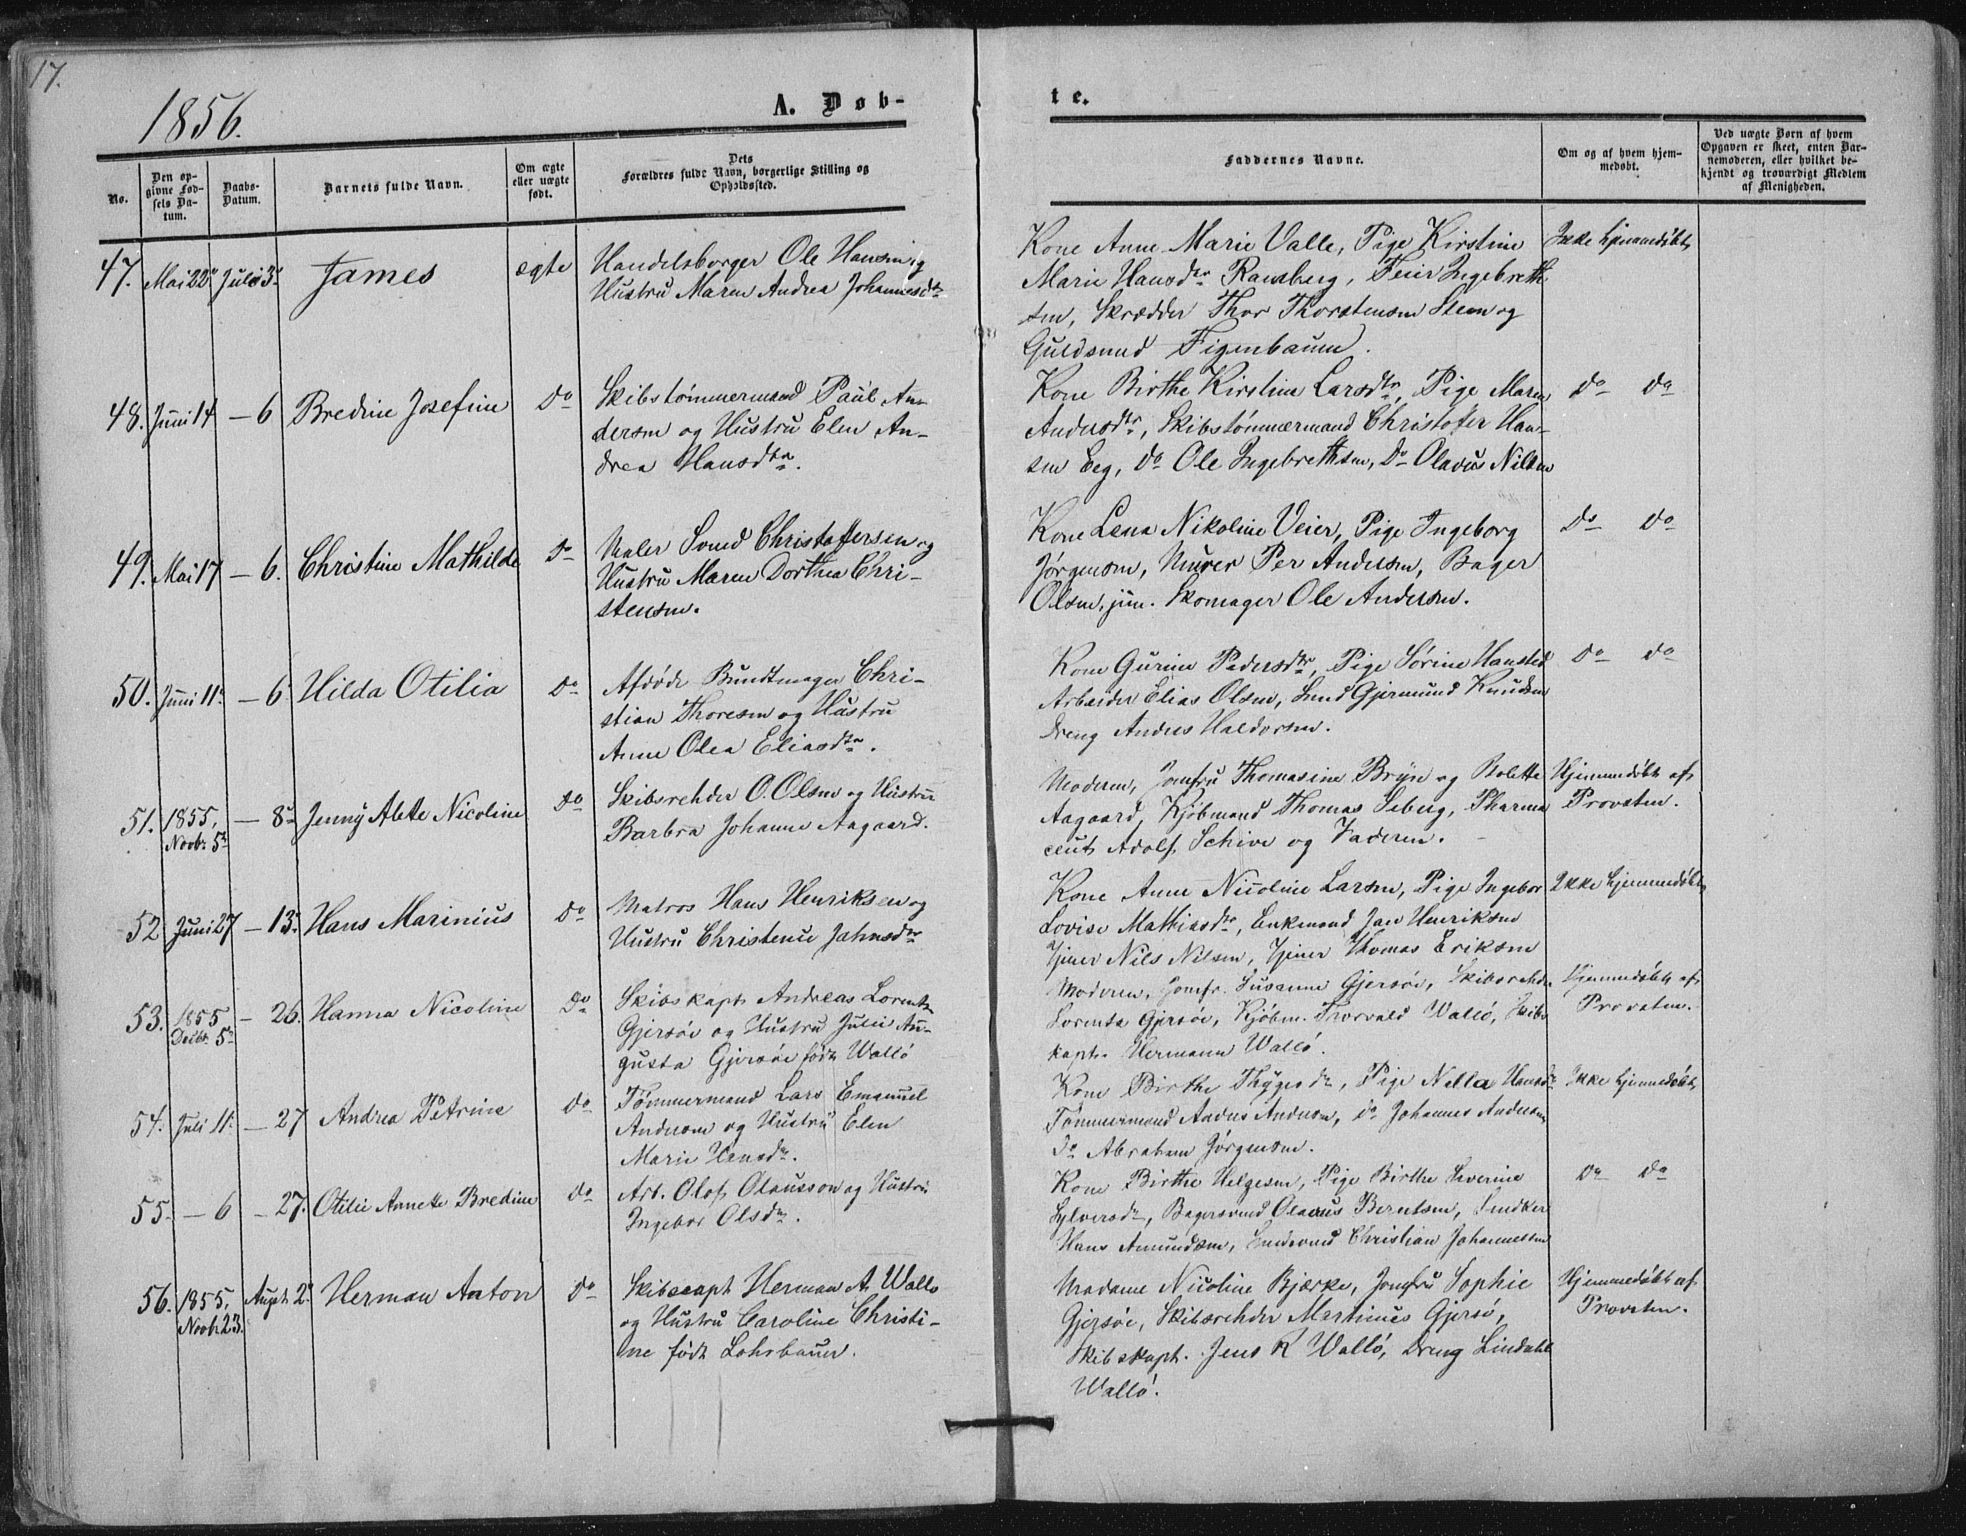 17.
1856.
A. Døb-
te.
No.
Den op-
givne Fød-
sels Da-
tum.
Daabs-
Datum.
Barnets fulde Navn.
Om ægte
eller uægte
født.
Dets
Forældres fulde Navn, borgerlige Stilling og
Opholdssted.
Faddernes Navne.
Om og af hvem hjem-
medøbt.
Ved uægte Børn af hvem
Opgaven er skeet, enten Bar-
nemoderen, eller hvilket be-
kjendt og troværdigt Medlem
af Menigheden.
47. Mai 22 Juli 3 James ægte
Handelsborger Ole Hansen og
Hustru Maren Andrea Johannesdtr
Kone Anne Marie Valle, Pige Kirstine
Marie Hansdtr Ramberg, Feier Ingebreth
sen, Skrædder Thor Thorstensen Steen og
Guldsmed Figenbaum.
Ikke hjemmedøbt
48. Juni 14 – 6 Bredine Josefine Do
Skibstømmermand Paul An-
dersen og Hustru Elen An-
drea Hansdtr.
Kone Birthe Kirstine Larsdtr, Pige Maren
Andersdtr, Skibstømmermand Christofer Han-
sen Eeg, Do Ole Ingebrethsen, Do Olavus Nilsen
Do Do
49. Mai 17 – 6. Christine Mathilde Do
Maler Svend Christoffersen og
Hustru Maren Dorthea Chri-
stensen.
Kone Lena Nikoline Veier, Pige Ingeborg
Jørgensen, Murer Per Andersen, Bager
Olsen, jun. Skomager Ole Andersen.
Do Do
50. Juni 11 – 6 Hilda Otilia Do
Afdøde Bundtmager Chri-
stian Thoresen og Hustru
Anne Olea Eliasdtr.
Kone Gurine Pedersdtr, Pige Sørine Hansted
Arbeider Elias Olsen, Gjermund Knudsen
Dreng Andres Haldorsen.
Do Do
51. 1855, Novbr. 5 – 8 Jenny Alette Nicoline Do
Skibsrehder O. Olsen og Hustru
Barbra Johanne Aagaard.
Moderen, Jomfru Thomasine Bryn og Bolette
Aagaard, Kjøbmand Thomas Seberg, Pharma
ceut Adolf Schive og Faderen.
Hjemmedøbt af
Provsten.
52 Juni 27 – 13 Hans Marinius Do
Matros Hans Henriksen og
Hustru Christense Jahnsdtr
Kone Anne Nicoline Larsen, Pige Ingebor
Lovise Mathisdtr, Enkemand Jan Henriksen
Tjener Nils Nilsen, Tjener Thomas Eriksen
Ikke hjemmedøbt
53. 1855 Decbr. 5 – 26. Hanna Nicoline Do
Skibskapt. Andreas Lorents
Gjersøe og Hustru Julie Au-
gusta Gjersøe født Wallø
Moderen, Jomfr. Susanne Gjersøe, Skibsrehder
Lorents Gjersøe, Kjøbm. Thorvald Wallø, Skibs
kapt. Hermann Wallø.
Hjemmedøbt af
Provsten.
54. Juli 11 – 27 Andrea Petrine Do
Tømmermand Lars Emanuel
Andersen og Hustru Elen
Marie Hansdtr.
Kone Birthe Thygesdtr, Pige Nella Hansdtr
Tømmermand Andres Andersen, Do Johannes Andersen
Do Abraham Jørgensen.
Ikke hjemmedøbt
55. – 6 – 27. Otilie Annette Bredine Do
Arb. Olof Olausson og Hustru
Ingebor Olsdtr.
Kone Birthe Helgesen, Pige Birthe Severine
Sylversdtr, Bagersvend Olaus Berntsen, Snedker
Hans Amundsen, Christian Johannessen
Do Do
56. 1855, Novbr. 23. Augst. 2. Herman Anton Do
Skibscapt Herman A. Wallø
og Hustru Caroline Christi-
ne født Lohrbauer.
Madame Nicoline Bjærke, Jomfru Sophie
Gjersøe, Skibsrehder Martinus Gjersø,
Skibskapt. Jens R Wallø, Dreng Lindahl
Wallø.
Hjemmedøbt af
Provsten.